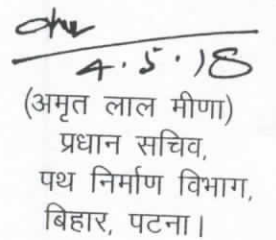 4.5.18
(अमृत लाल मीणा)
प्रधान सचिव,
पथ निर्माण विभाग,
बिहार, पटना।